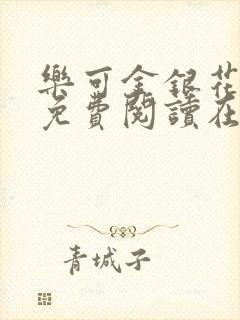 樂可金銀花
免費閱讀在
青城子